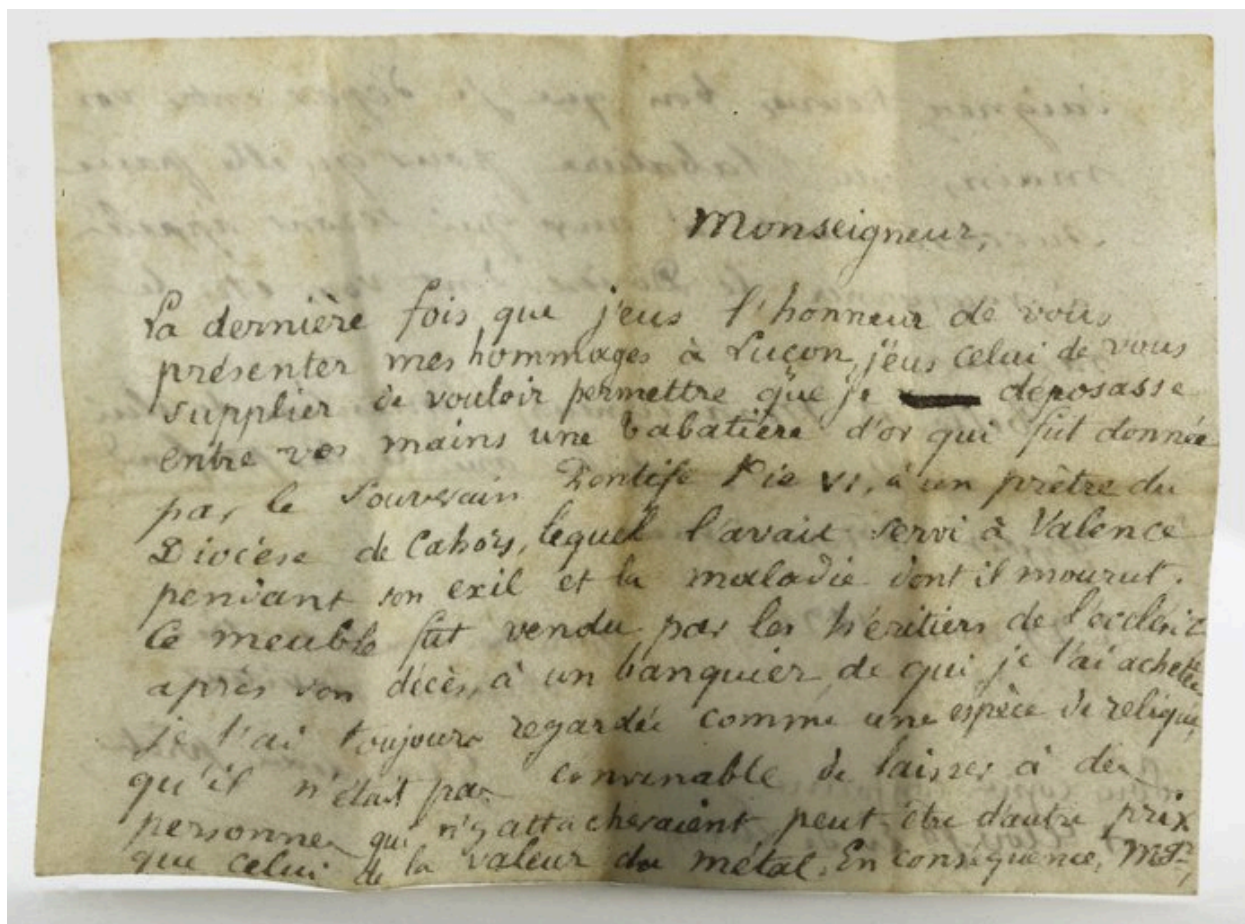 Monseigneur,
La dernière fois que j'eus l'honneur de vous
présenter mes hommages à Luçon, j'eus celui de vous
supplier de vouloir permettre que je déposasse
entre vos mains une tabatière d'or qui fut donnée
par le Souverain Pontife Pie VI, à un prêtre du
Diocèse de Cahors, lequel l'avait servi à Valence
pendant son exil et la maladie dont il mourut.
Ce meuble fut vendu par les héritiers de l'ecclésic
après son décès, à un banquier de qui je l'ai achetée
je l'ai toujours regardée comme une espèce de relique,
qu'il n'était pas convenable de laisser à des
personnes qui n'y attacheraient peut être d'autre prix
que celui de la valeur du métal. En conséquence, Mgr,